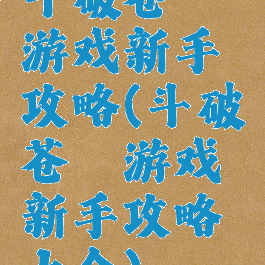 斗破苍
游戏新手
攻略(斗破
苍 游戏
新手攻略
大全)